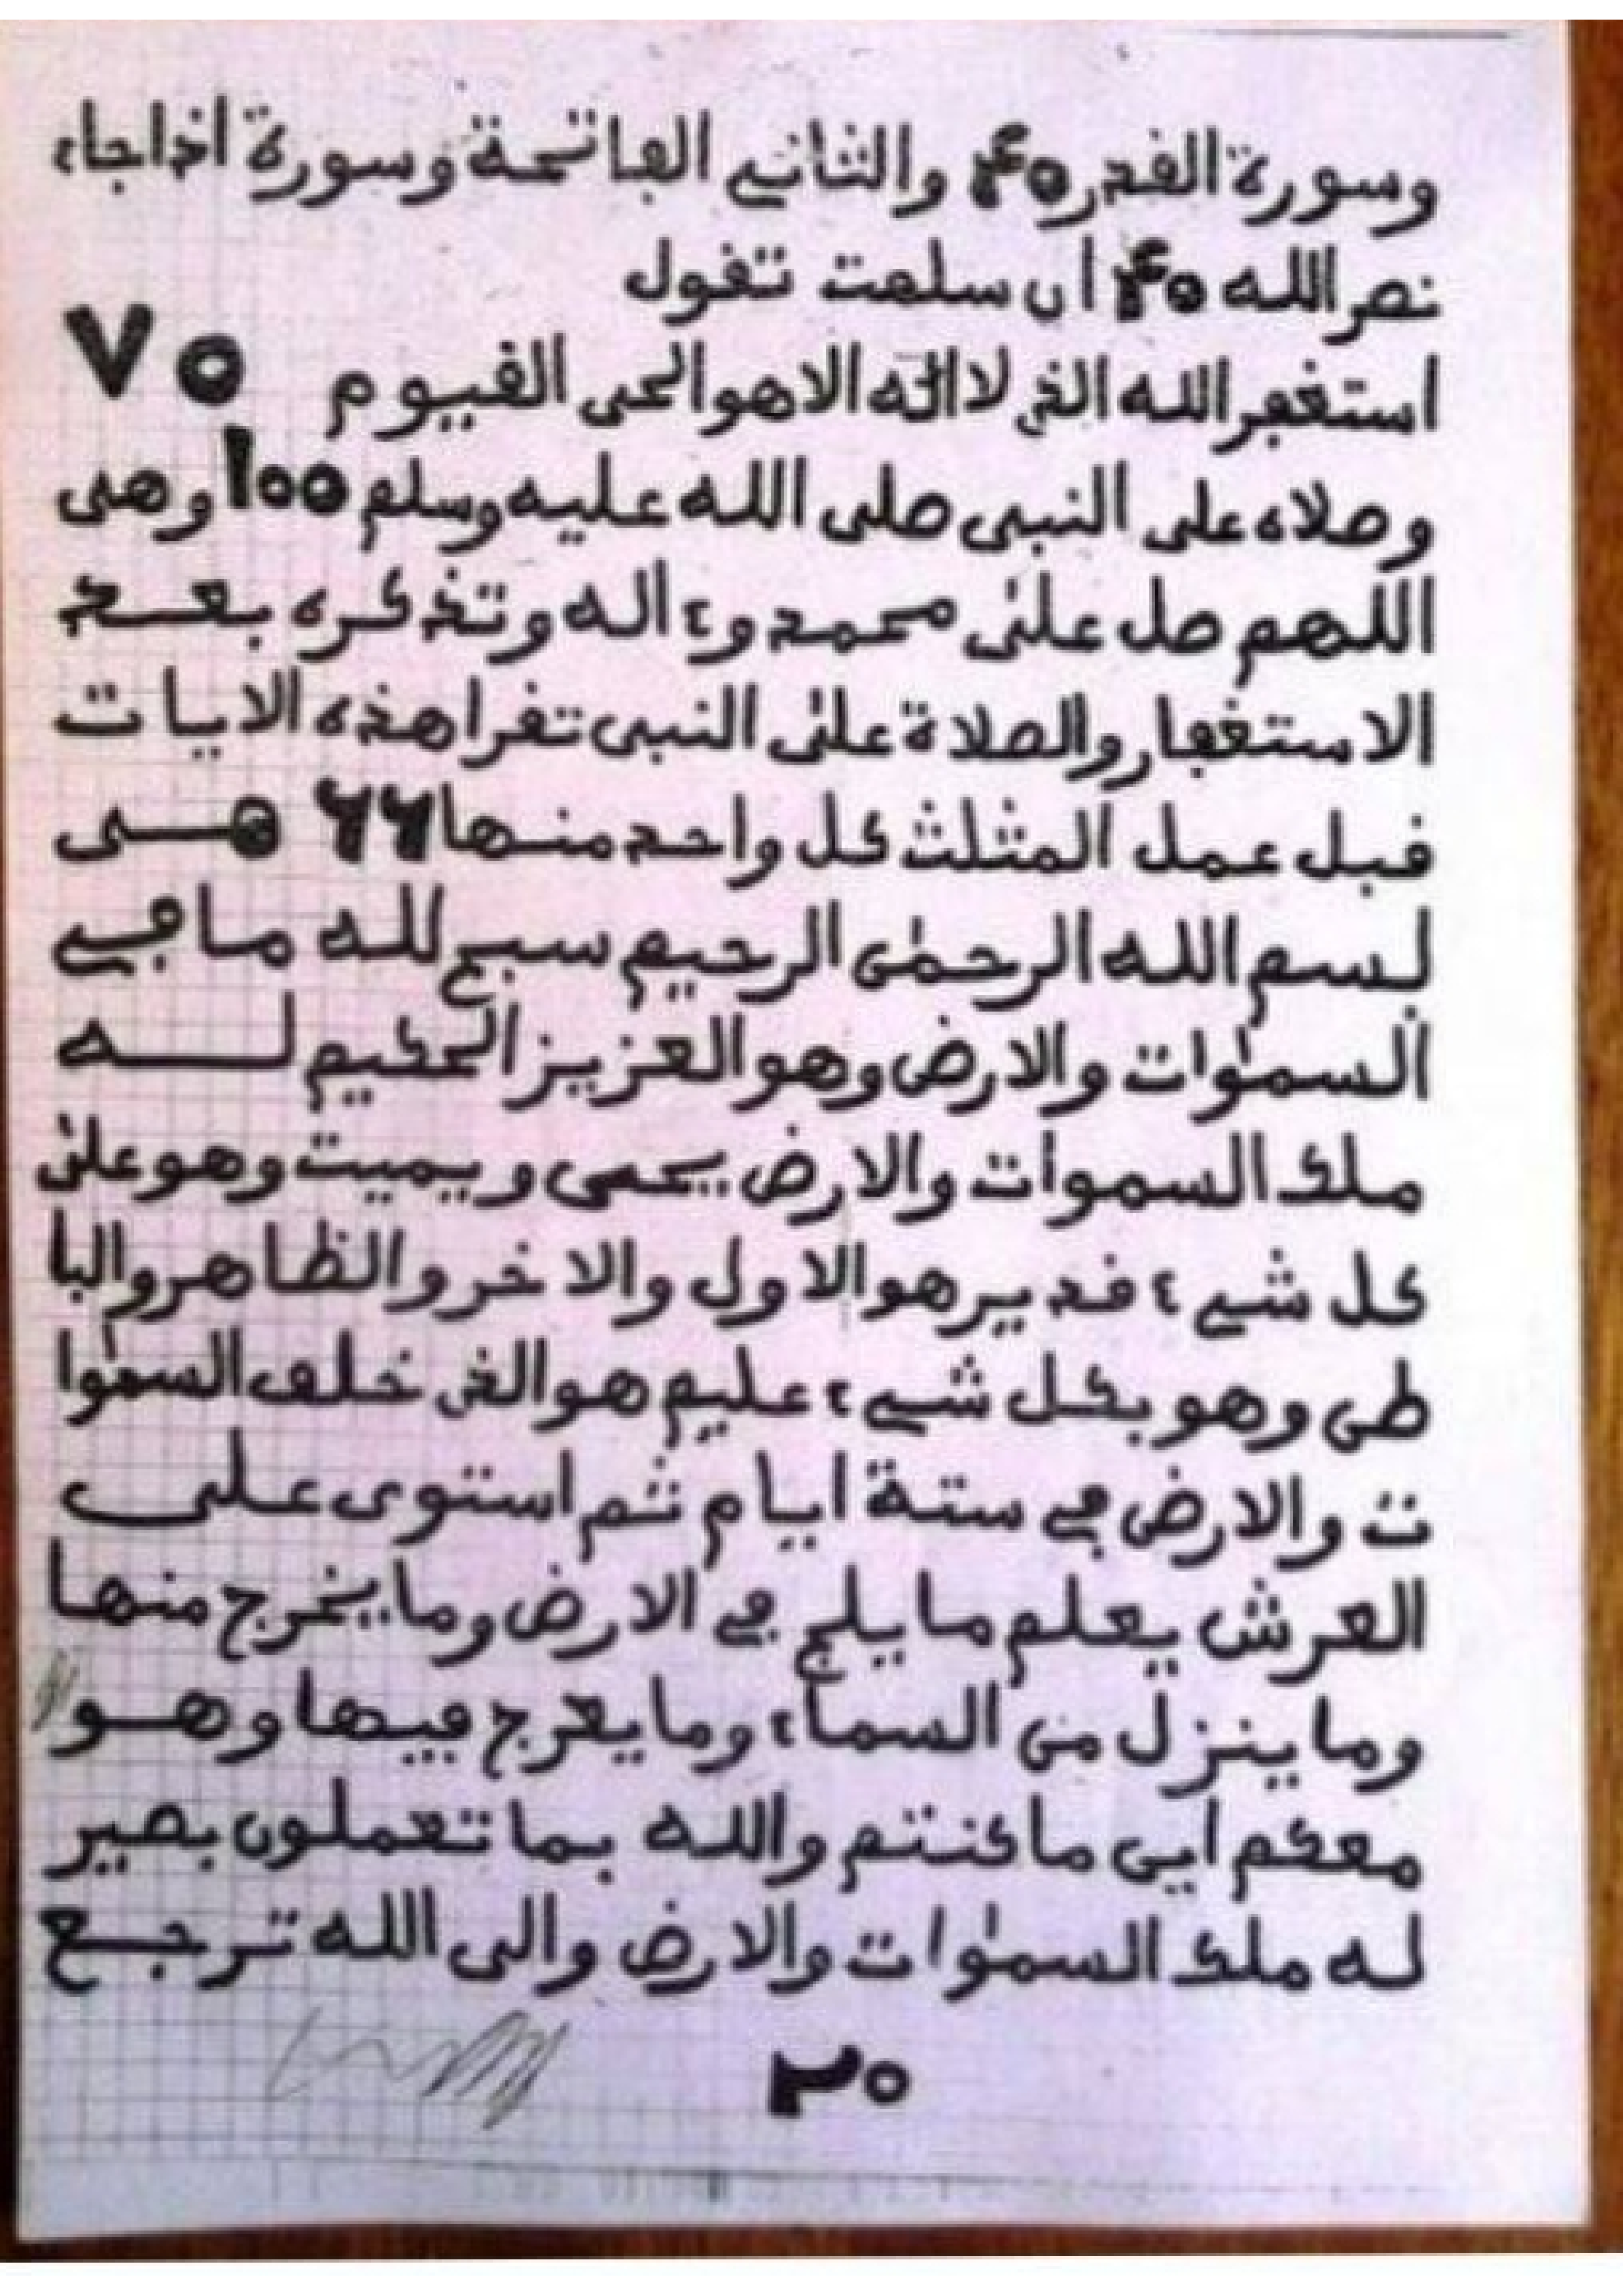 وسورة القدر ۴۰ والثاني الفاتحة وسورة اذا جاء
نصر الله ۴۰ ان سلمت تقول
استغفر الله الذي لا اله الا هو الحي القيوم ٧٥
وصلاه على النبي صلى الله عليه وسلم 100 وهي
اللهم صل على محمد وءاله وتذكره بعد
الاستغفار والصلاة على النبي تقرا هذه الايات
قبل عمل المثلث كل واحد منها ٦٦ هي
بسم الله الرحمٰن الرحيم سبح لله ما في
السمٰوات والارض وهو العزيز الحكيم له
ملك السموات والارض يحيي ويميت وهو على
كل شيء قدير هو الاول والاخر والظاهر والبا
طن وهو بكل شيء عليم هو الذي خلق السمٰوا
ت والارض في ستة ايام ثم استوى على
العرش يعلم ما يلج في الارض وما يخرج منها
وما ينزل من السماء وما يعرج فيها وهو
معكم اين ما كنتم والله بما تعملون بصير
له ملك السمٰوات والارض والى الله ترجع
٢٠